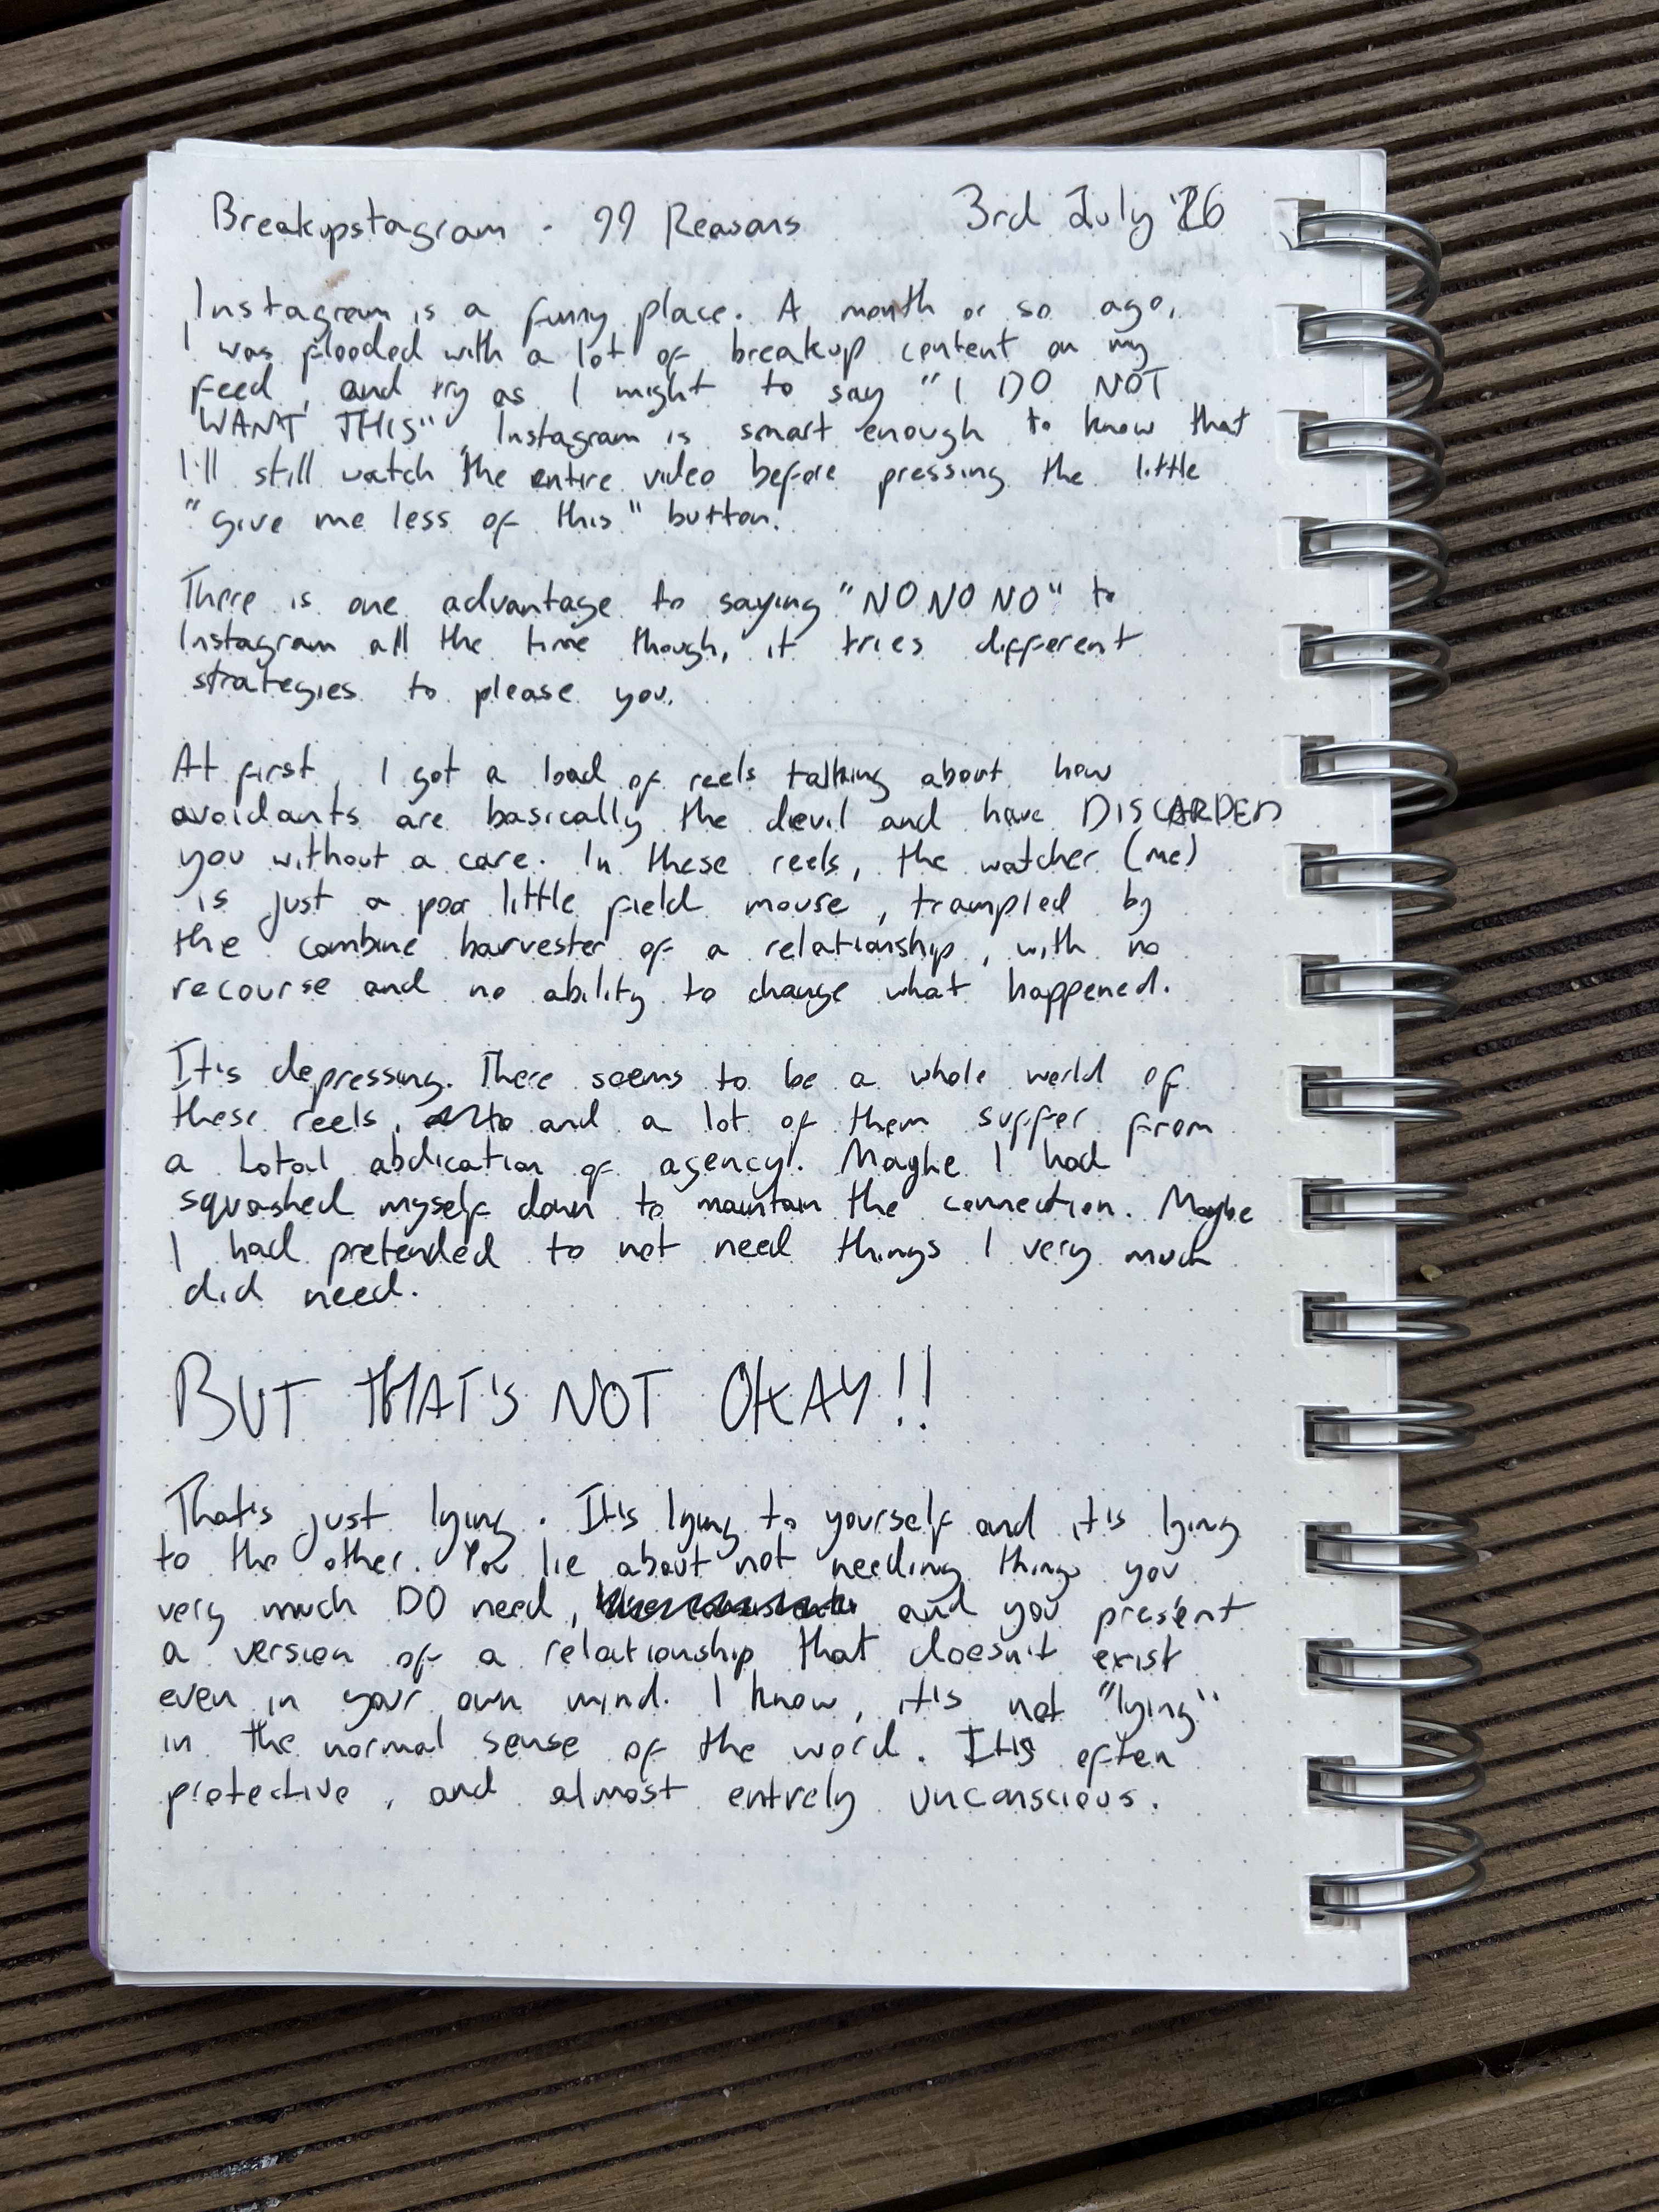 Breakupstagram - 99 Reasons 3rd July '26
Instagram is a funny place. A month or so ago,
I was flooded with a lot of breakup content on my
feed, and try as I might to say "I DO NOT
WANT THIS", Instagram is smart enough to know that
I'll still watch the entire video before pressing the little
"give me less of this" button.
There is one advantage to saying "NO NO NO" to
Instagram all the time though, it tries different
strategies to please you.
At first, I got a load of reels talking about how
avoidants are basically the devil and have DISCARDED
you without a care. In these reels, the watcher (me)
is just a poor little field mouse, trampled by
the combine harvester of a relationship, with no
recourse and no ability to change what happened.
It's depressing. There seems to be a whole world of
these reels, and a lot of them suffer from
a total abdication of agency. Maybe I had
squashed myself down to maintain the connection. Maybe
I had pretended to not need things I very much
did need.
BUT THAT'S NOT OKAY!!
That's just lying. It's lying to yourself and it's lying
to the other. You lie about not needing things you
very much DO need, and you present
a version of a relationship that doesn't exist
even in your own mind. I know, it's not "lying"
in the normal sense of the word. It's often
protective, and almost entirely unconscious.